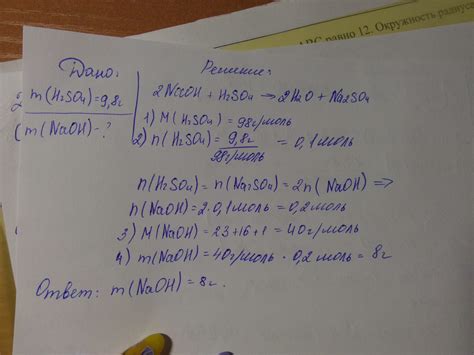 АВС равно 12. Окружность радиус
Дано:
m(H₂SO₄)=9,8г
m(NaOH)-?
Решение:
2NaOH + H₂SO₄ → 2H₂O + Na₂SO₄
1) M(H₂SO₄) = 98г/моль
2) n(H₂SO₄) = 9,8г / 98г/моль = 0,1моль
n(H₂SO₄) = n(Na₂SO₄) = 2n(NaOH) =>
n(NaOH) = 2·0,1моль = 0,2моль
3) M(NaOH) = 23+16+1 = 40г/моль
4) m(NaOH) = 40г/моль · 0,2моль = 8г
Ответ: m(NaOH) = 8г.